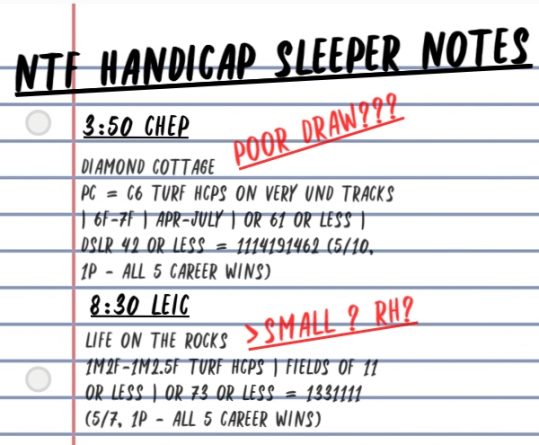 NTF HANDICAP SLEEPER NOTES
3:50 CHEP
POOR DRAW???
DIAMOND COTTAGE
PC = C6 TURF HCPS ON VERY UND TRACKS
| 6F-7F | APR-JULY | OR 61 OR LESS |
DSLR 42 OR LESS = 1114191462 (5/10,
1P - ALL 5 CAREER WINS)
8:30 LEIC
>SMALL ? RH?
LIFE ON THE ROCKS
1M2F-1M2.5F TURF HCPS | FIELDS OF 11
OR LESS | OR 73 OR LESS = 1331111
(5/7, 1P - ALL 5 CAREER WINS)